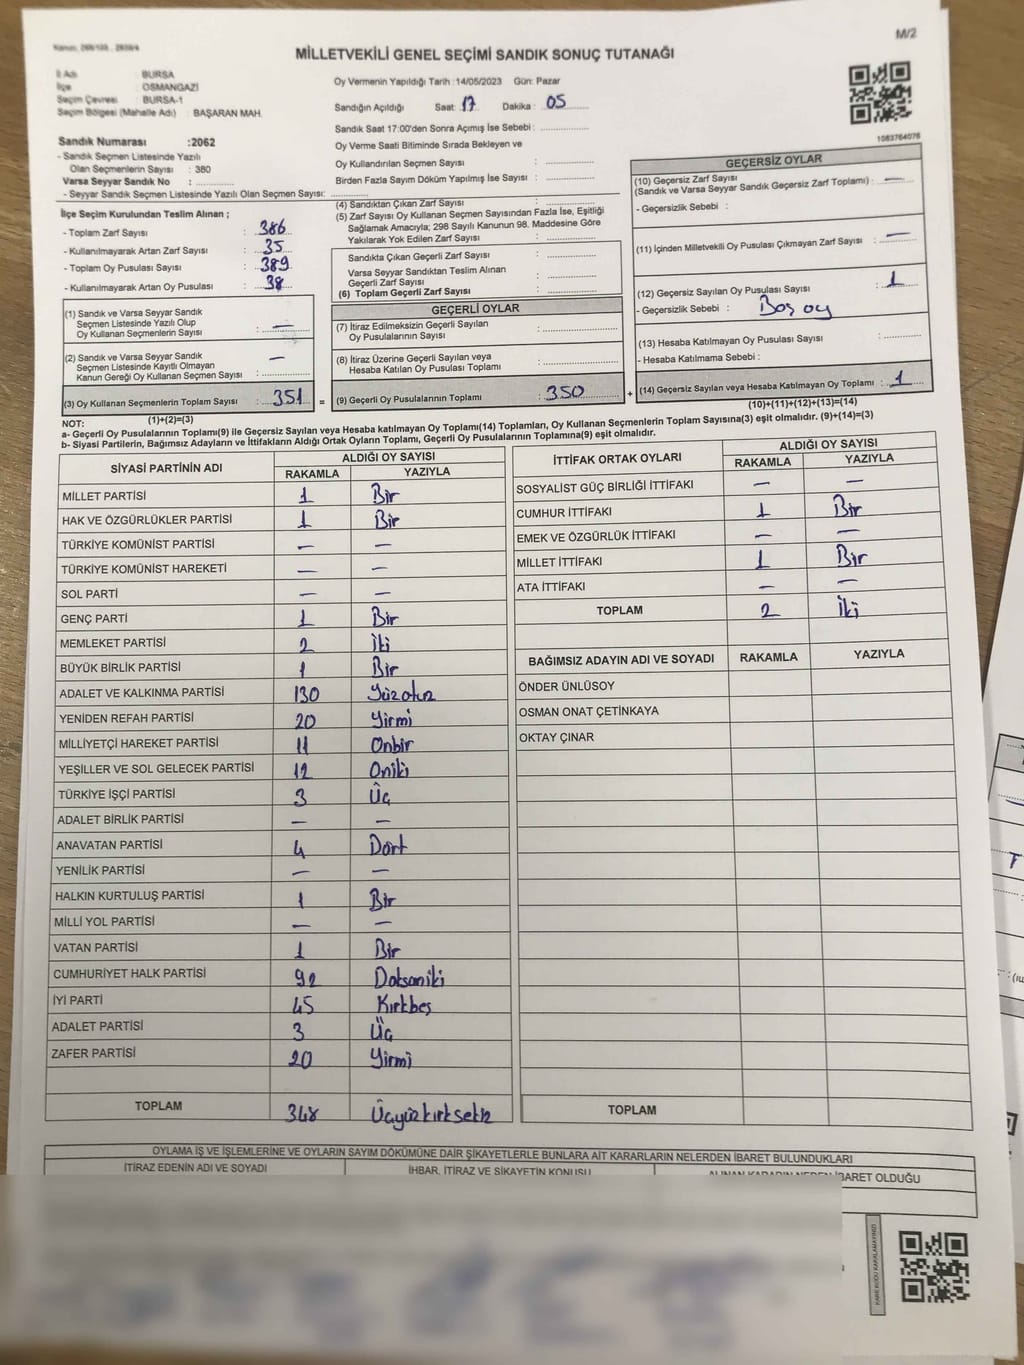 M/2
MİLLETVEKİLİ GENEL SEÇİMİ SANDIK SONUÇ TUTANAĞI
İl Adı : BURSA
İlçe : OSMANGAZİ
Seçim Çevresi : BURSA-1
Seçim Bölgesi (Mahalle Adı) : BAŞARAN MAH.
Oy Vermenin Yapıldığı Tarih : 14/05/2023 Gün: Pazar
Sandığın Açıldığı Saat : 17 Dakika : 05
Sandık Saat 17:00'den Sonra Açımış İse Sebebi :
Oy Verme Saati Bitiminde Sırada Bekleyen ve
Oy Kullandırılan Seçmen Sayısı :
Birden Fazla Sayım Döküm Yapılmış İse Sayısı :
1083764076
Sandık Numarası :2062
- Sandık Seçmen Listesinde Yazılı
Olan Seçmenlerin Sayısı : 380
Varsa Seyyar Sandık No :
- Seyyar Sandık Seçmen Listesinde Yazılı Olan Seçmen Sayısı:
İlçe Seçim Kurulundan Teslim Alınan ;
- Toplam Zarf Sayısı : 386
- Kullanılmayarak Artan Zarf Sayısı : 35
- Toplam Oy Pusulası Sayısı : 389
- Kullanılmayarak Artan Oy Pusulası : 38
(1) Sandık ve Varsa Seyyar Sandık
Seçmen Listesinde Yazılı Olup
Oy Kullanan Seçmenlerin Sayısı : —
(2) Sandık ve Varsa Seyyar Sandık
Seçmen Listesinde Kayıtlı Olmayan
Kanun Gereği Oy Kullanan Seçmen Sayısı : —
(3) Oy Kullanan Seçmenlerin Toplam Sayısı : 351 =
(1)+(2)=(3)
(4) Sandıktan Çıkan Zarf Sayısı :
(5) Zarf Sayısı Oy Kullanan Seçmen Sayısından Fazla İse, Eşitliği
Sağlamak Amacıyla; 298 Sayılı Kanunun 98. Maddesine Göre
Yakılarak Yok Edilen Zarf Sayısı :
Sandıkta Çıkan Geçerli Zarf Sayısı :
Varsa Seyyar Sandıktan Teslim Alınan
Geçerli Zarf Sayısı :
(6) Toplam Geçerli Zarf Sayısı :
GEÇERLİ OYLAR
(7) İtiraz Edilmeksizin Geçerli Sayılan
Oy Pusulalarının Sayısı :
(8) İtiraz Üzerine Geçerli Sayılan veya
Hesaba Katılan Oy Pusulası Toplamı :
(9) Geçerli Oy Pusulalarının Toplamı : 350 +
GEÇERSİZ OYLAR
(10) Geçersiz Zarf Sayısı
(Sandık ve Varsa Seyyar Sandık Geçersiz Zarf Toplamı) : —
- Geçersizlik Sebebi :
(11) İçinden Milletvekili Oy Pusulası Çıkmayan Zarf Sayısı : —
(12) Geçersiz Sayılan Oy Pusulası Sayısı : 1
- Geçersizlik Sebebi : Boş oy
(13) Hesaba Katılmayan Oy Pusulası Sayısı :
- Hesaba Katılmama Sebebi :
(14) Geçersiz Sayılan veya Hesaba Katılmayan Oy Toplamı : 1
(10)+(11)+(12)+(13)=(14)
NOT:
a- Geçerli Oy Pusulalarının Toplamı(9) ile Geçersiz Sayılan veya Hesaba katılmayan Oy Toplamı(14) Toplamları, Oy Kullanan Seçmenlerin Toplam Sayısına(3) eşit olmalıdır. (9)+(14)=(3)
b- Siyasi Partilerin, Bağımsız Adayların ve İttifakların Aldığı Ortak Oyların Toplamı, Geçerli Oy Pusulalarının Toplamına(9) eşit olmalıdır.
SİYASİ PARTİNİN ADI ALDIĞI OY SAYISI
RAKAMLA YAZIYLA
MİLLET PARTİSİ 1 Bir
HAK VE ÖZGÜRLÜKLER PARTİSİ 1 Bir
TÜRKİYE KOMÜNİST PARTİSİ — —
TÜRKİYE KOMÜNİST HAREKETİ — —
SOL PARTİ — —
GENÇ PARTİ 1 Bir
MEMLEKET PARTİSİ 2 İki
BÜYÜK BİRLİK PARTİSİ 1 Bir
ADALET VE KALKINMA PARTİSİ 130 Yüzotuz
YENİDEN REFAH PARTİSİ 20 Yirmi
MİLLİYETÇİ HAREKET PARTİSİ 11 Onbir
YEŞİLLER VE SOL GELECEK PARTİSİ 12 Oniki
TÜRKİYE İŞÇİ PARTİSİ 3 Üç
ADALET BİRLİK PARTİSİ — —
ANAVATAN PARTİSİ 4 Dört
YENİLİK PARTİSİ — —
HALKIN KURTULUŞ PARTİSİ 1 Bir
MİLLİ YOL PARTİSİ — —
VATAN PARTİSİ 1 Bir
CUMHURİYET HALK PARTİSİ 92 Doksaniki
İYİ PARTİ 45 Kırkbeş
ADALET PARTİSİ 3 Üç
ZAFER PARTİSİ 20 Yirmi
TOPLAM 348 Üçyüzkırksekiz
İTTİFAK ORTAK OYLARI ALDIĞI OY SAYISI
RAKAMLA YAZIYLA
SOSYALİST GÜÇ BİRLİĞİ İTTİFAKI — —
CUMHUR İTTİFAKI 1 Bir
EMEK VE ÖZGÜRLÜK İTTİFAKI — —
MİLLET İTTİFAKI 1 Bir
ATA İTTİFAKI — —
TOPLAM 2 İki
BAĞIMSIZ ADAYIN ADI VE SOYADI RAKAMLA YAZIYLA
ÖNDER ÜNLÜSOY
OSMAN ONAT ÇETİNKAYA
OKTAY ÇINAR
TOPLAM
OYLAMA İŞ VE İŞLEMLERİNE VE OYLARIN SAYIM DÖKÜMÜNE DAİR ŞİKAYETLERLE BUNLARA AİT KARARLARIN NELERDEN İBARET BULUNDUKLARI
İTİRAZ EDENİN ADI VE SOYADI İHBAR, İTİRAZ VE ŞİKAYETİN KONUSU ALINAN KARARIN NEDEN İBARET OLDUĞU
KARE KODU KARALAMAYINIZ!